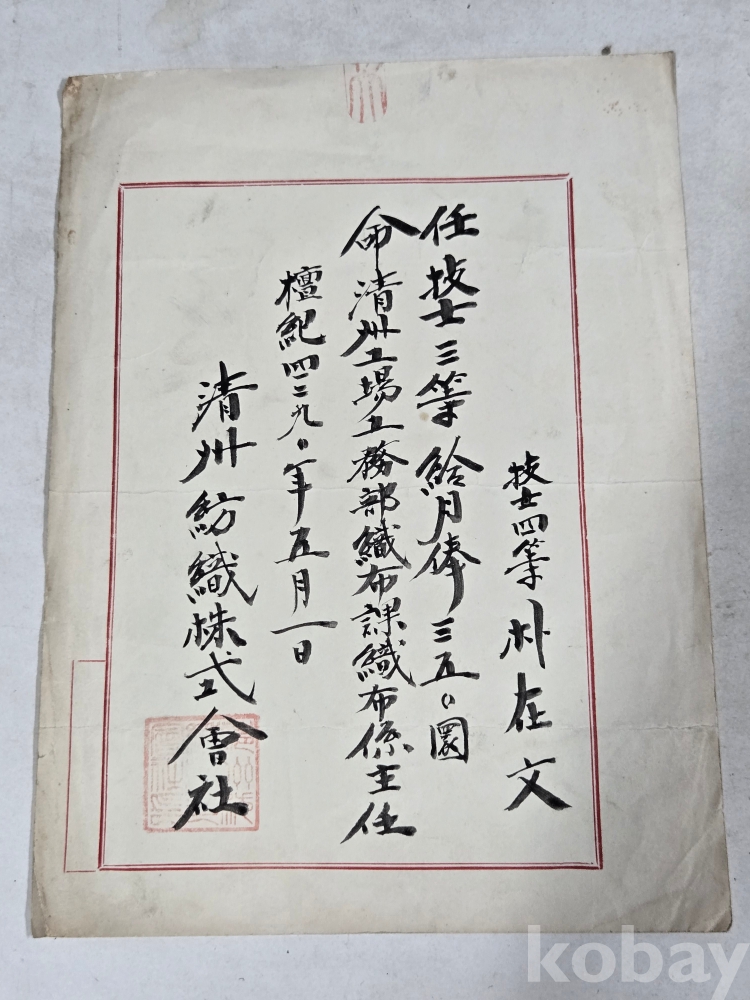 技士四等 朴在文
任技士三等 給月俸三五〇圜
命清州工場工務部織布課織布係主任
檀紀四二九〇年五月一日
清州紡織株式會社
kobay